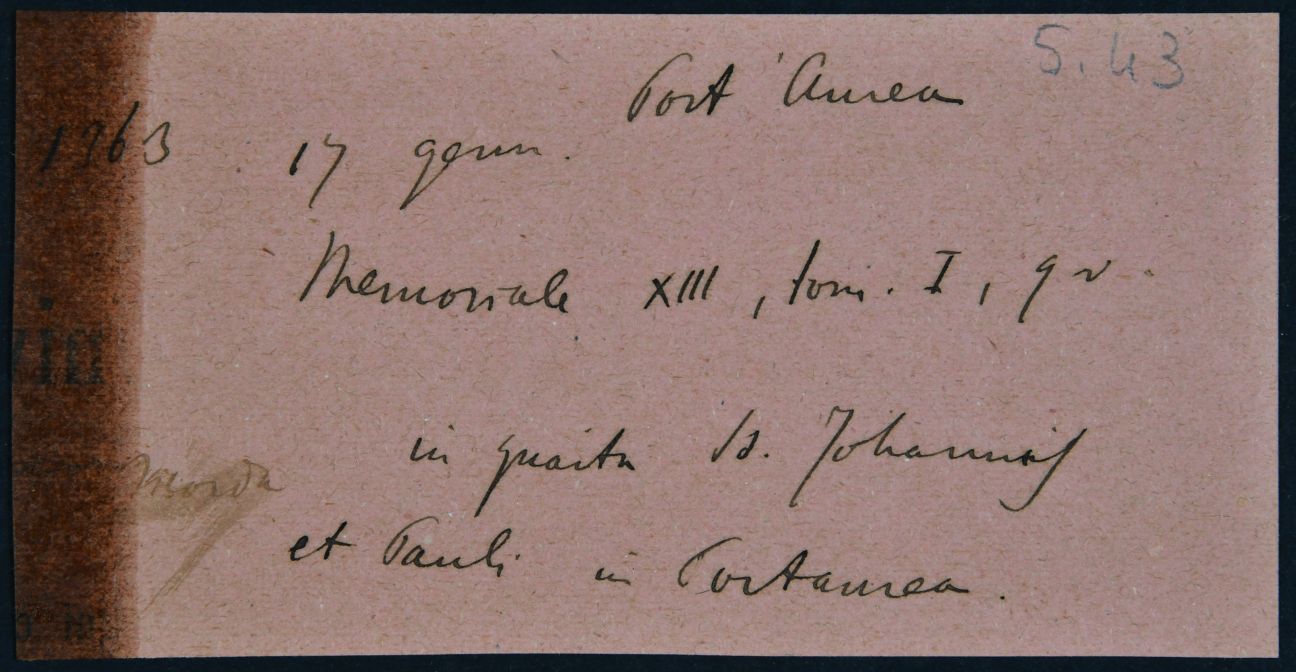 5.43
Port'Aurea
1363 17 genn.
Memoriale XIII, tom. I, 9 v.
in quarta ss. Johannis
et Pauli in Portaurea.